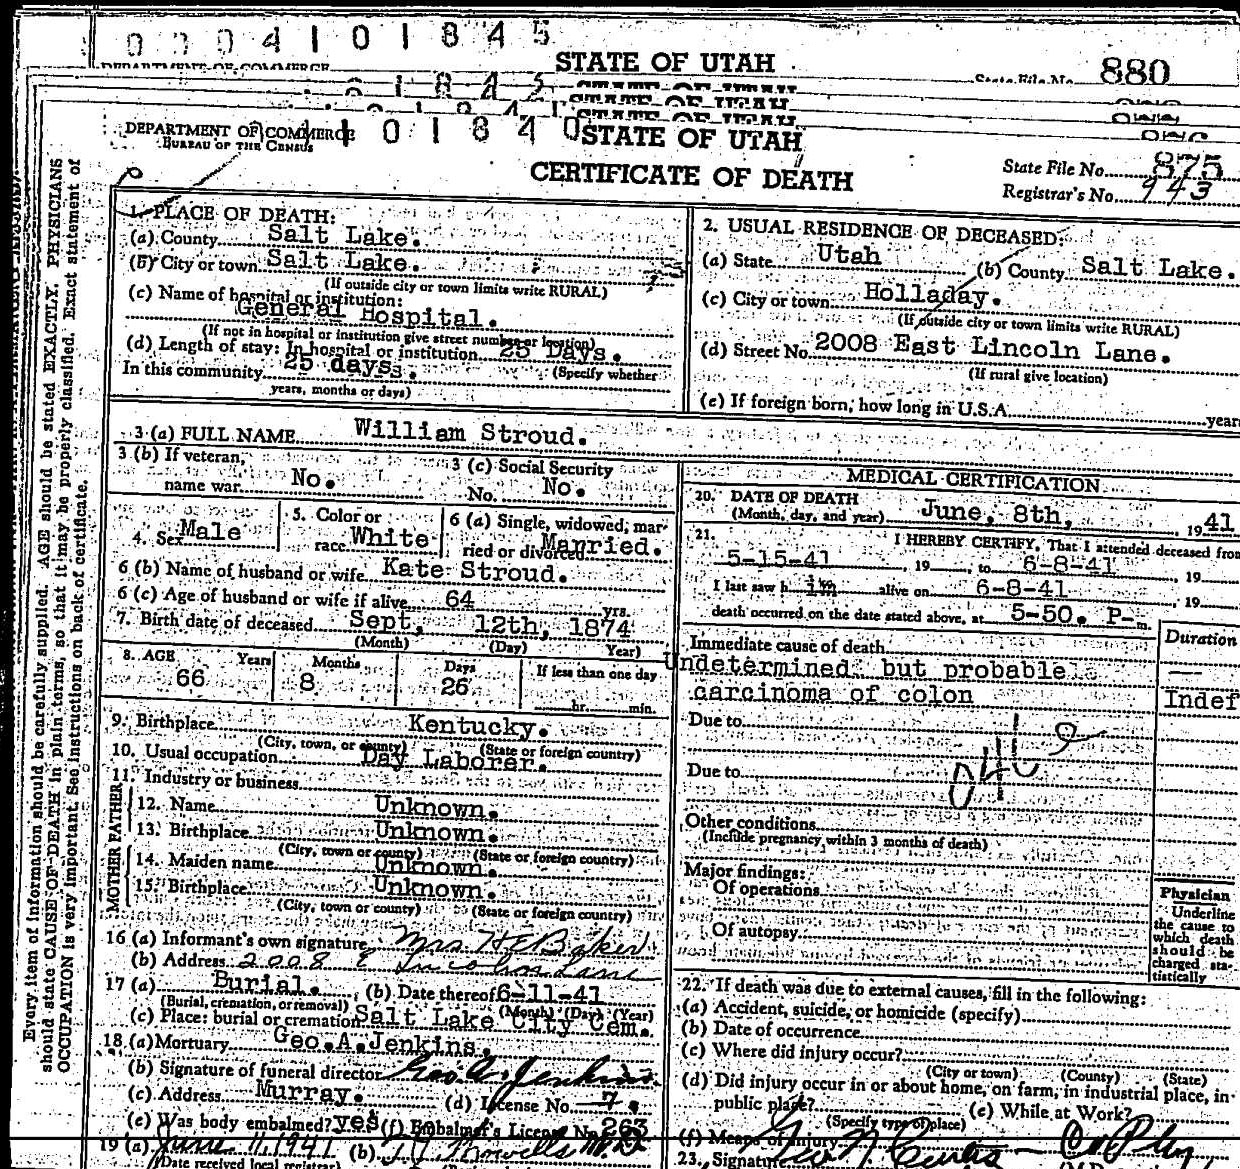 0004101845
STATE OF UTAH
DEPARTMENT OF COMMERCE
State File No. 880
STATE OF UTAH
DEPARTMENT OF COMMERCE
BUREAU OF THE CENSUS
101840
STATE OF UTAH
CERTIFICATE OF DEATH
State File No. 875
Registrar's No. 943
Every item of information should be carefully supplied. AGE should be stated EXACTLY. PHYSICIANS
should state CAUSE OF DEATH in plain terms, so that it may be properly classified. Exact statement of
OCCUPATION is very important. See instructions on back of certificate.
1. PLACE OF DEATH:
(a) County Salt Lake.
(b) City or town Salt Lake.
(If outside city or town limits write RURAL)
(c) Name of hospital or institution:
General Hospital.
(If not in hospital or institution give street number or location)
(d) Length of stay: In hospital or institution 25 Days.
In this community 25 days. (Specify whether
years, months or days)
2. USUAL RESIDENCE OF DECEASED:
(a) State Utah (b) County Salt Lake.
(c) City or town Holladay.
(If outside city or town limits write RURAL)
(d) Street No. 2008 East Lincoln Lane.
(If rural give location)
(e) If foreign born, how long in U.S.A. years
3 (a) FULL NAME William Stroud.
3 (b) If veteran,
name war No.
3 (c) Social Security
No. No.
4. Sex Male
5. Color or
race White
6 (a) Single, widowed, mar-
ried or divorced Married.
6 (b) Name of husband or wife Kate Stroud.
6 (c) Age of husband or wife if alive 64 yrs.
7. Birth date of deceased Sept. 12th, 1874
(Month) (Day) Year)
8. AGE Years Months Days If less than one day
66 8 26 hr. min.
9. Birthplace Kentucky.
(City, town, or county) (State or foreign country)
10. Usual occupation Day Laborer.
11. Industry or business
FATHER
12. Name Unknown.
13. Birthplace Unknown.
(City, town or county) (State or foreign country)
MOTHER
14. Maiden name Unknown.
15. Birthplace Unknown.
(City, town or county) (State or foreign country)
16 (a) Informant's own signature Mrs H E Baker
(b) Address 2008 E Lincoln Lane
17 (a) Burial. (b) Date thereof 6-11-41
(Burial, cremation, or removal) (Month) (Day) (Year)
(c) Place: burial or cremation Salt Lake City Cem.
18 (a) Mortuary Geo.A.Jenkins.
(b) Signature of funeral director Geo. A. Jenkins.
(c) Address Murray. (d) License No. 7.
(e) Was body embalmed? yes (f) Embalmer's License No. 263
19 (a) June 11, 1941 (b) M.D.
(Date received local registrar)
MEDICAL CERTIFICATION
20. DATE OF DEATH
(Month, day, and year) June, 8th, 1941
21. I HEREBY CERTIFY, That I attended deceased from
5-15-41, 19 , to 6-8-41, 19
I last saw h im alive on 6-8-41, 19
death occurred on the date stated above, at 5-50. P-m.
Immediate cause of death Duration
Undetermined but probable
carcinoma of colon Indef
Due to
Due to
046
Other conditions
(Include pregnancy within 3 months of death)
Major findings:
Of operations
Of autopsy
Physician
Underline
the cause to
which death
should be
charged sta-
tistically
22. If death was due to external causes, fill in the following:
(a) Accident, suicide, or homicide (specify)
(b) Date of occurrence
(c) Where did injury occur?
(City or town) (County) (State)
(d) Did injury occur in or about home, on farm, in industrial place, in
public place? (e) While at Work?
(Specify type of place)
(f) Means of injury
23. Signature Geo N Curtis